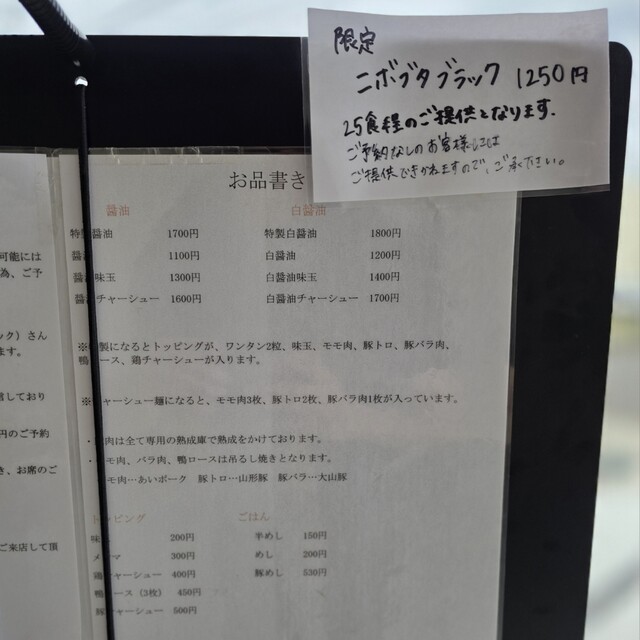 限定
ニボブタブラック 1250円
25食程のご提供となります.
ご予約なしのお客様には
ご提供できかねますので、ご承ください。
お品書き
醤油 白醤油
特製醤油 1700円 特製白醤油 1800円
醤油 1100円 白醤油 1200円
味玉 1300円 白醤油味玉 1400円
チャーシュー 1600円 白醤油チャーシュー 1700円
※ 製になるとトッピングが、ワンタン2粒、味玉、モモ肉、豚トロ、豚バラ肉、
鴨ロース、鶏チャーシューが入ります。
※ ャーシュー麺になると、モモ肉3枚、豚トロ2枚、豚バラ肉1枚が入っています。
肉は全て専用の熟成庫で熟成をかけております。
モ肉、バラ肉、鴨ロースは吊るし焼きとなります。
モ肉…あいポーク 豚トロ…山形豚 豚バラ…大山豚
トッピング ごはん
味 200円 半めし 150円
マ 300円 めし 200円
鶏チャーシュー 400円 豚めし 530円
鴨ロース (3枚) 450円
豚チャーシュー 500円
可能には
為、ご予
ック）さん
ます。
しており
円のご予約
き、お席のご
ご来店して頂